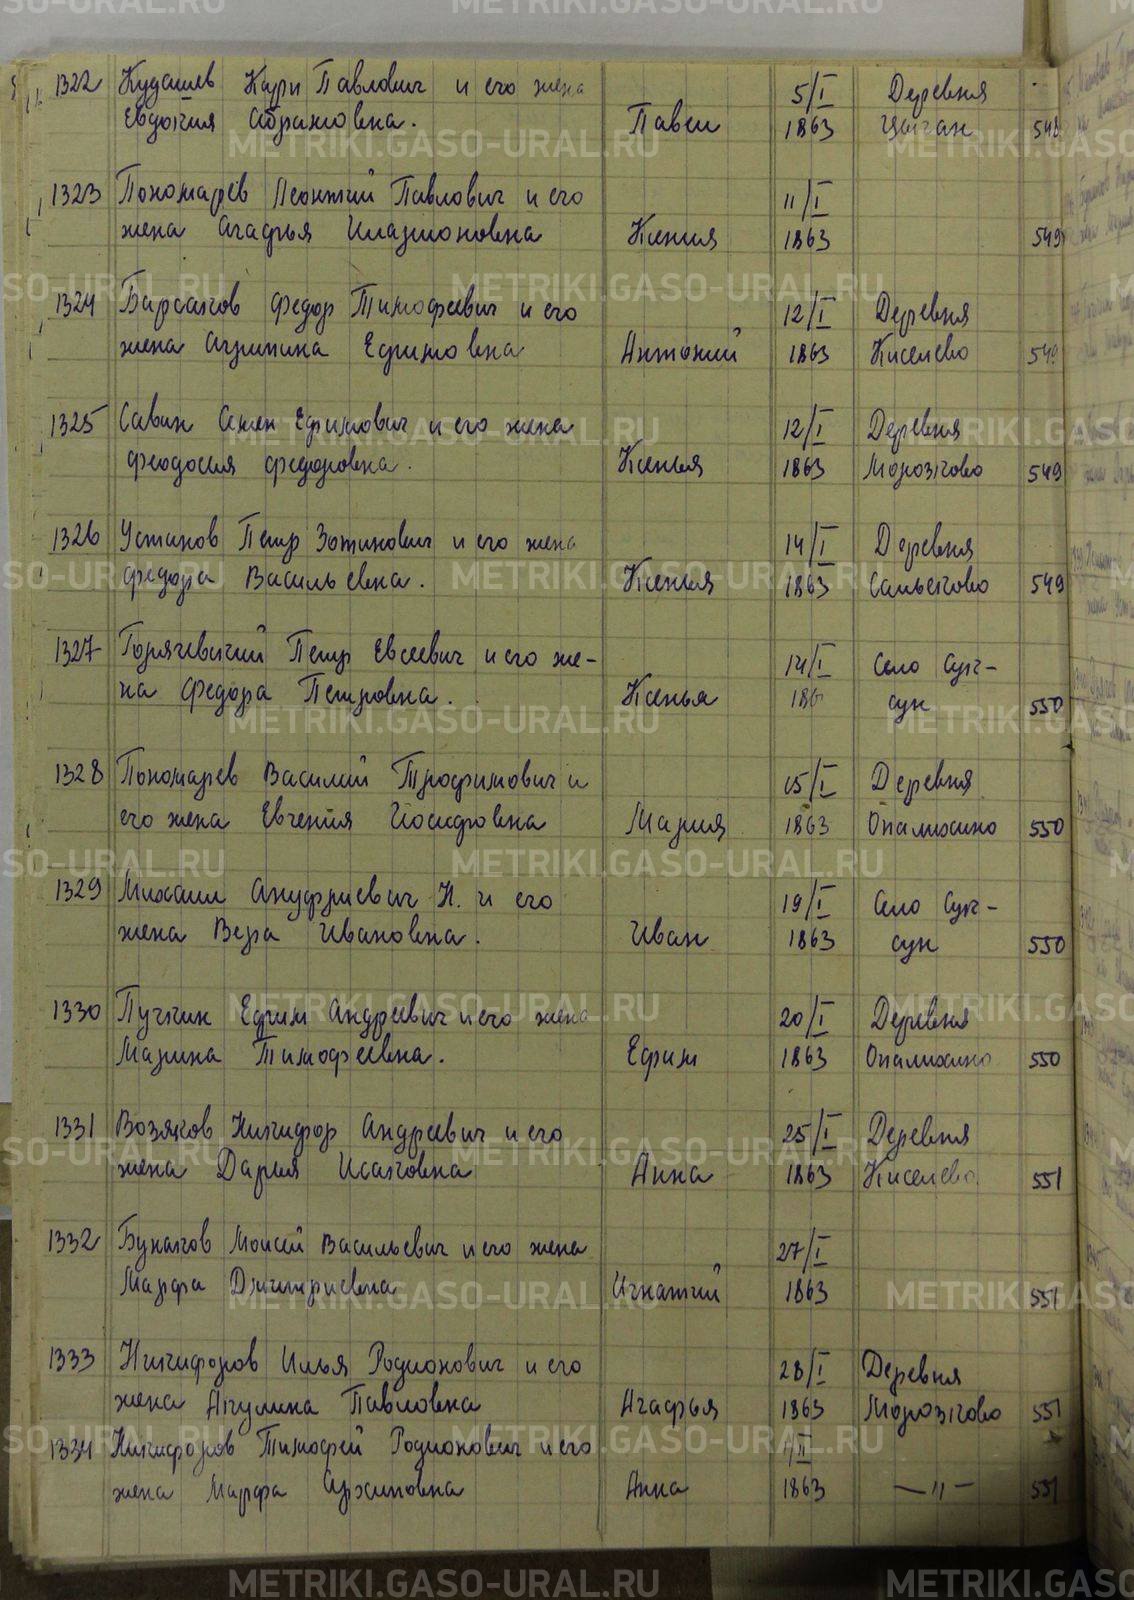 1322 Кудашев Карп Павлович и его жена
Евдокия Абрамовна. Павел 5/I 1863 Деревня Цыган 548
1323 Пономарев Леонтий Павлович и его
жена Агафья Илларионовна Ксения 11/I 1863 549
1324 Барсаков Федор Тимофеевич и его
жена Агрипина Ефимовна Антоний 12/I 1863 Деревня Киселево 549
1325 Савин Семен Ефимович и его жена
Феодосия Федоровна. Ксенья 12/I 1863 Деревня Морозково 549
1326 Устинов Петр Зотинович и его жена
Федора Васильевна. Ксенья 14/I 1863 Деревня 549
1327 Петр Евсеевич и его же-
на Федора Петровна. Ксенья 14/I 186 Село Сук-
сун 550
1328 Пономарев Василий Трофимович и
его жена Евгения Иосифовна Мария 15/I 1863 Деревня Опалихино 550
1329 Михаил Ануфриевич Н. и его
жена Вера Ивановна. Иван 19/I 1863 Село Сук-
сун 550
1330 Пучкин Ефим Андреевич и его жена
Марина Тимофеевна. Ефим 20/I 1863 Деревня Опалихино 550
1331 Возяков Никифор Андреевич и его
жена Дария Исаковна Анна 25/I 1863 Деревня Киселево 551
1332 Бунаков Моисей Васильевич и его жена
Марфа Дмитриевна Игнатий 27/I 1863 551
1333 Никифоров Илья Родионович и его
жена Акулина Павловна Агафья 28/I 1863 Деревня Морозково 551
1334 Никифоров Тимофей Родионович и его
жена Марфа Архиповна Анна 1/II 1863 —"— 551
METRIKI.GASO-URAL.RU